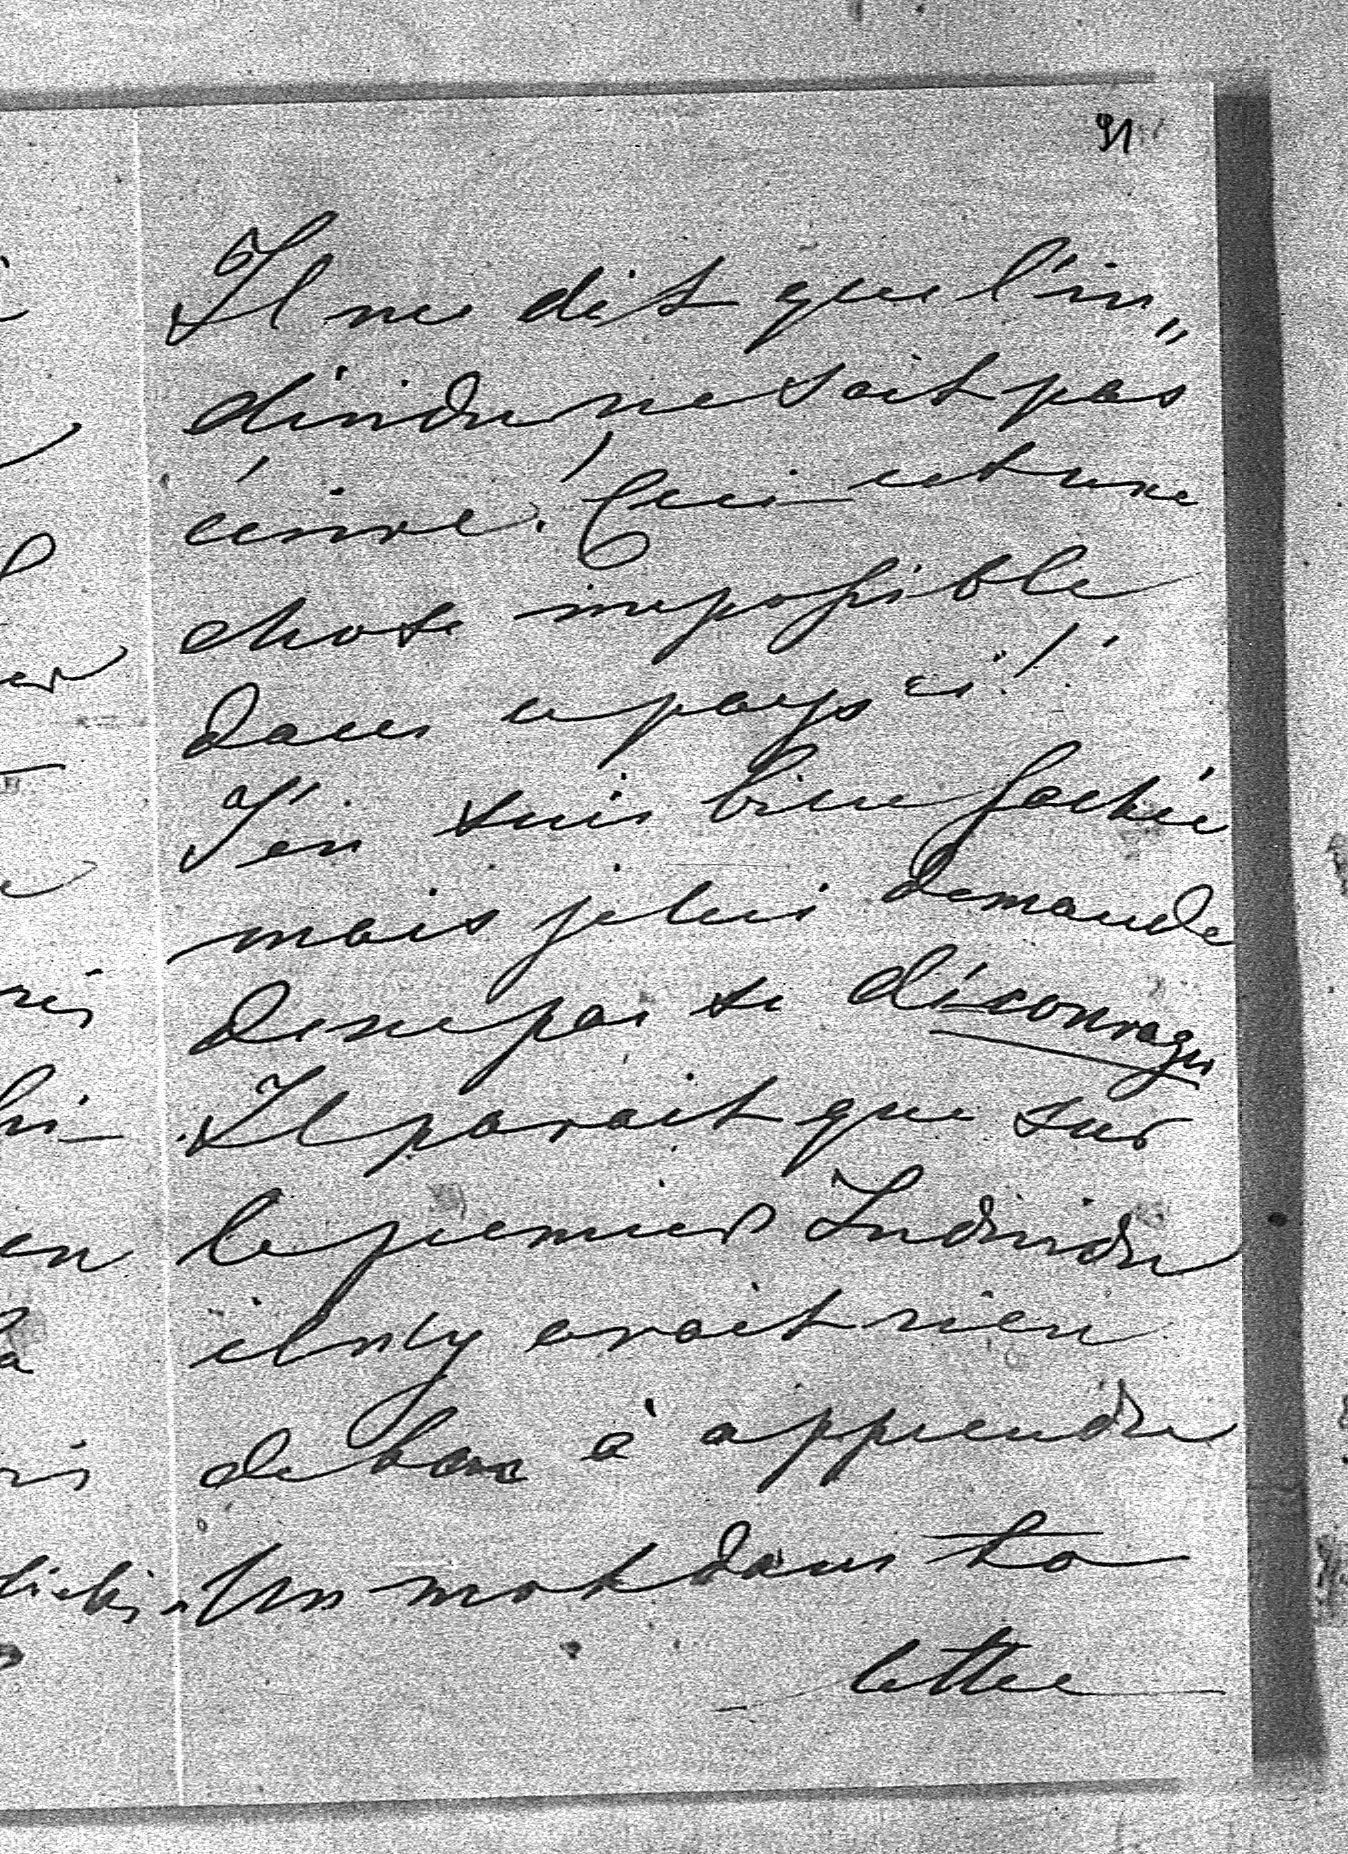 91
Il me dit que l'in„
dividu ne sait pas
écrire! Ceci est une
chose impossible
dans ce pays ci!
J'en suis bien fachée
mais je lui demande
de ne pas se décourager
Il parait que sur
le premier Individu
il n'y avait rien
de bon à apprendre
Un mot dans ta
lettre